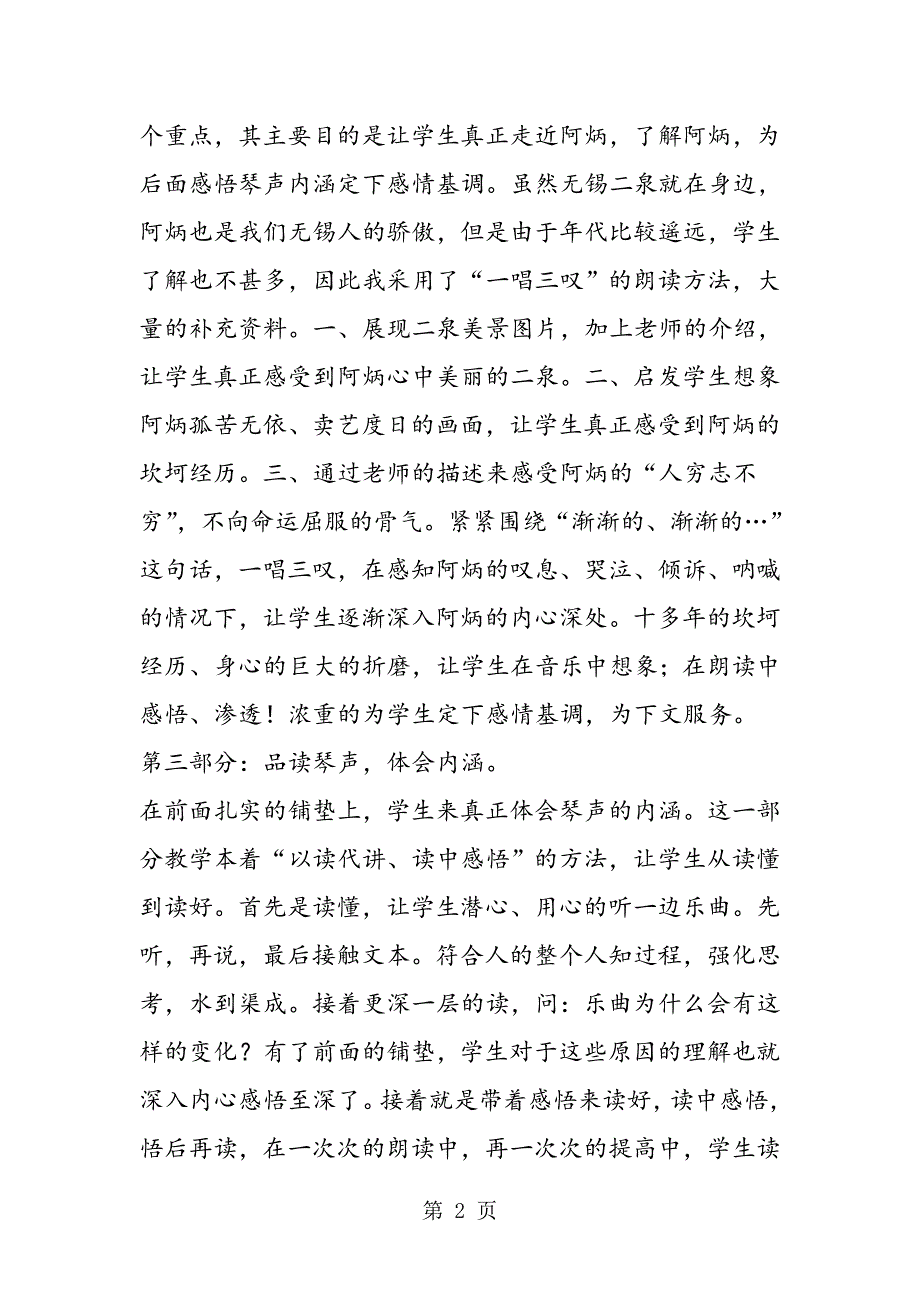 个重点，其主要目的是让学生真正走近阿炳，了解阿炳，为
后面感悟琴声内涵定下感情基调。虽然无锡二泉就在身边，
阿炳也是我们无锡人的骄傲，但是由于年代比较遥远，学生
了解也不甚多，因此我采用了“一唱三叹”的朗读方法，大
量的补充资料。一、展现二泉美景图片，加上老师的介绍，
让学生真正感受到阿炳心中美丽的二泉。二、启发学生想象
阿炳孤苦无依、卖艺度日的画面，让学生真正感受到阿炳的
坎坷经历。三、通过老师的描述来感受阿炳的“人穷志不
穷”，不向命运屈服的骨气。紧紧围绕“渐渐的、渐渐的…”
这句话，一唱三叹，在感知阿炳的叹息、哭泣、倾诉、呐喊
的情况下，让学生逐渐深入阿炳的内心深处。十多年的坎坷
经历、身心的巨大的折磨，让学生在音乐中想象；在朗读中
感悟、渗透！浓重的为学生定下感情基调，为下文服务。
第三部分：品读琴声，体会内涵。
在前面扎实的铺垫上，学生来真正体会琴声的内涵。这一部
分教学本着“以读代讲、读中感悟”的方法，让学生从读懂
到读好。首先是读懂，让学生潜心、用心的听一边乐曲。先
听，再说，最后接触文本。符合人的整个人知过程，强化思
考，水到渠成。接着更深一层的读，问：乐曲为什么会有这
样的变化？有了前面的铺垫，学生对于这些原因的理解也就
深入内心感悟至深了。接着就是带着感悟来读好，读中感悟，
悟后再读，在一次次的朗读中，再一次次的提高中，学生读
第 2 页